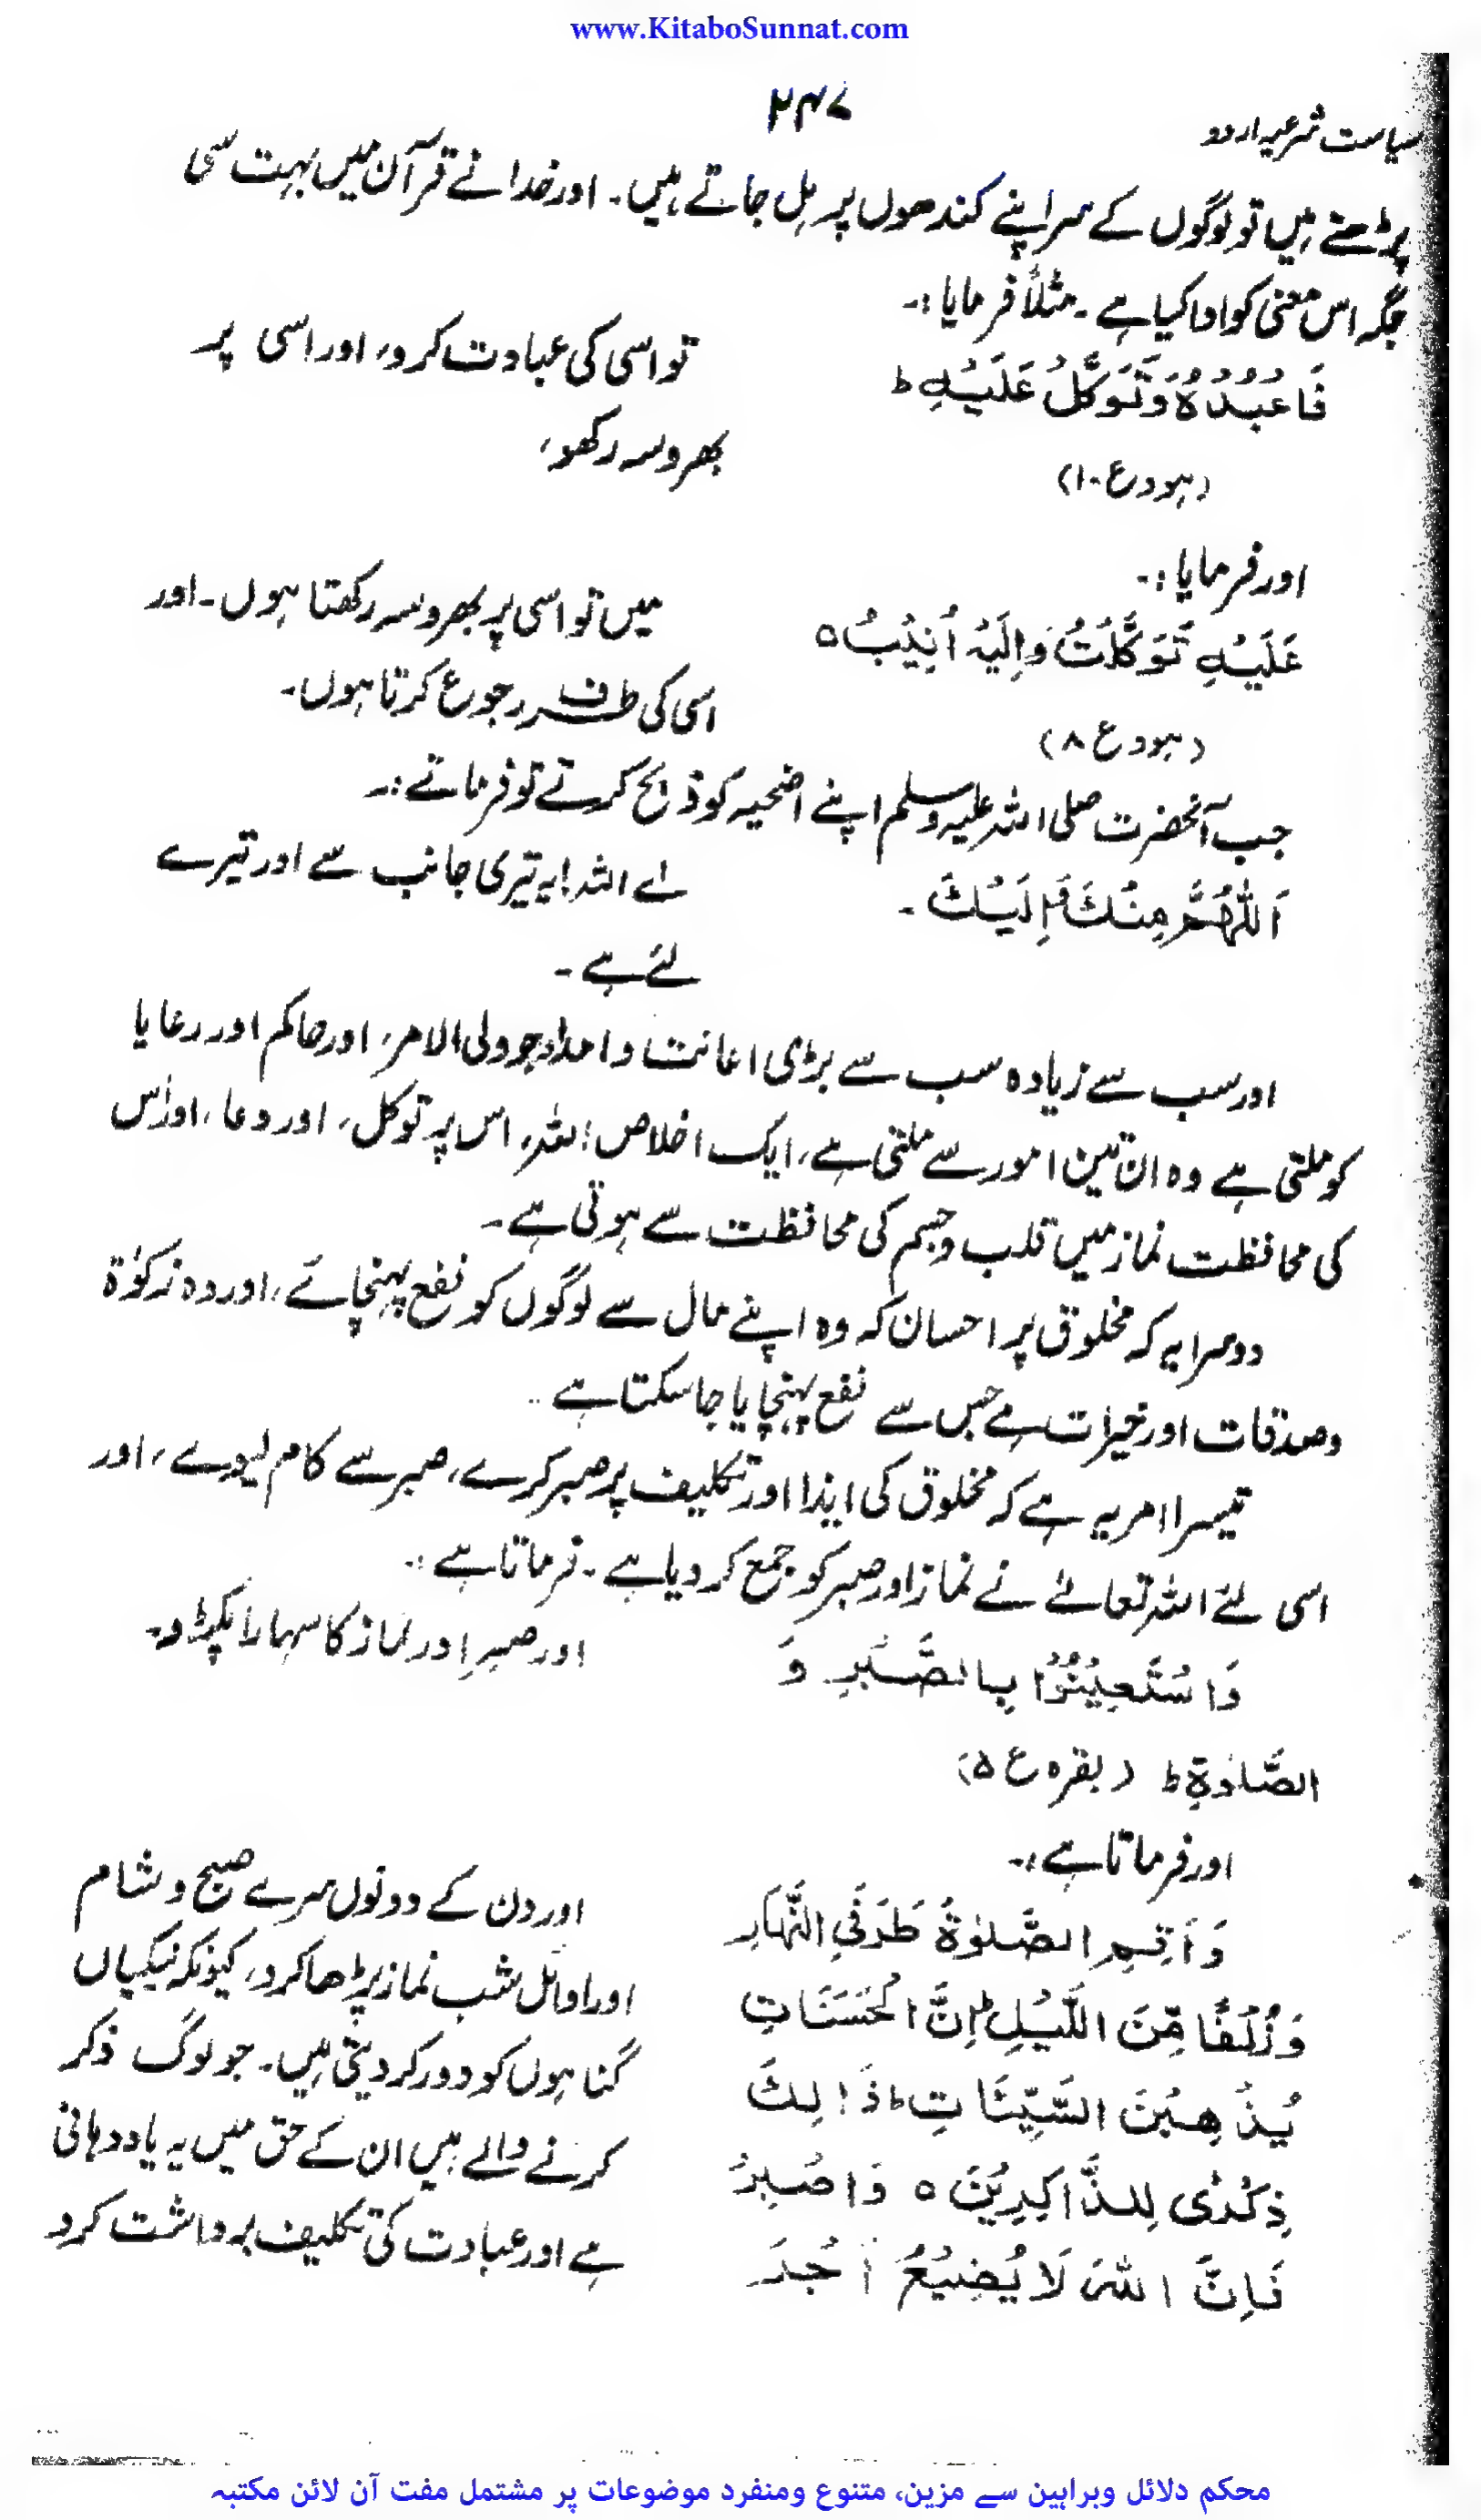 www.KitaboSunnat.com
سیاست شرعیہ اردو
۲۴۷
پڑھتے ہیں تو لوگوں کے سر اپنے کندھوں پر ہل جاتے ہیں۔ اور خدا نے قرآن میں بہت سی
جگہ اس معنی کو ادا کیا ہے۔ مثلاً فرمایا :۔
فَاعْبُدْهُ وَتَوَكَّلْ عَلَيْهِ ط
تو اسی کی عبادت کرو، اور اسی پر
(ہود ع ۱۰)
بھروسہ رکھو،
اور فرمایا :۔
عَلَيْهِ تَوَكَّلْتُ وَإِلَيْهِ أُنِيْبُ ه
میں تو اسی پر بھروسہ رکھتا ہوں۔ اور
(ہود ع ۸)
اسی کی طرف رجوع کرتا ہوں۔
جب آنحضرت صلی اللہ علیہ وسلم اپنے اضحیہ کو ذبح کرتے تو فرماتے :۔
اَللّٰهُمَّ مِنْكَ وَإِلَيْكَ ۔
اے اللہ! یہ تیری جانب سے اور تیرے
لئے ہے ۔
اور سب سے زیادہ سب سے بڑی اعانت و امداد جو ولی الامر، اور حاکم اور رعایا
کو ملتی ہے وہ ان تین امور سے ملتی ہے، ایک اخلاص للہ، اس پر توکل، اور دعا، اور اس
کی محافظت نماز میں قلب و جسم کی محافظت سے ہوتی ہے۔
دوسرا یہ کہ مخلوق پر احسان کہ وہ اپنے مال سے لوگوں کو نفع پہنچائے، اور وہ زکوٰۃ
و صدقات اور خیرات ہے جس سے نفع پہنچایا جا سکتا ہے ۔
تیسرا امر یہ ہے کہ مخلوق کی ایذا اور تکلیف پر صبر کرے، صبر سے کام لیوے، اور
اسی لئے اللہ تعالےٰ نے نماز اور صبر کو جمع کر دیا ہے ۔ فرماتا ہے :۔
وَاسْتَعِيْنُوْا بِالصَّبْرِ وَ
اور صبر اور نماز کا سہارا پکڑو۔
الصَّلٰوةِ ط (بقرہ ع ۵)
اور فرماتا ہے :۔
وَاَقِمِ الصَّلٰوةَ طَرَفَيِ النَّهَارِ
اور دن کے دونوں سرے صبح و شام
وَزُلَفًا مِّنَ اللَّيْلِ ط اِنَّ الْحَسَنَاتِ
اور اوائل شب نماز پڑھا کرو، کیونکہ نیکیاں
يُذْهِبْنَ السَّيِّئَاتِ ط ذَالِكَ
گناہوں کو دور کر دیتی ہیں۔ جو لوگ ذکر
ذِكْرٰى لِلذَّاكِرِيْنَ ه وَاصْبِرْ
کرنے والے ہیں ان کے حق میں یہ یاددہانی
فَاِنَّ اللّٰهَ لَا يُضِيْعُ اَجْرَ
ہے اور عبادت کی تکلیف برداشت کرو
محکم دلائل وبراہین سے مزین، متنوع ومنفرد موضوعات پر مشتمل مفت آن لائن مکتبہ